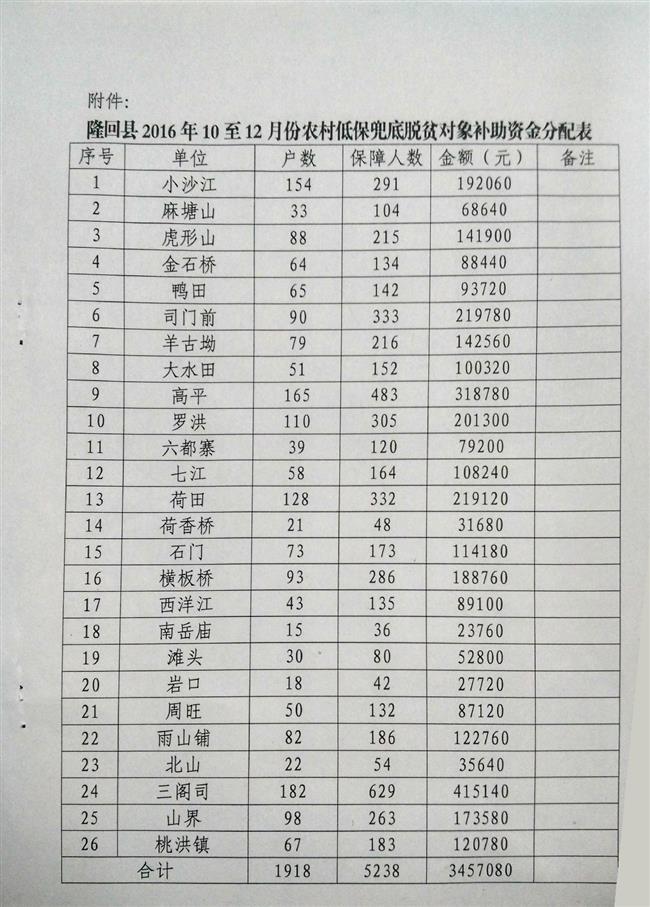 附件:
隆回县 2016 年 10 至 12 月份农村低保兜底脱贫对象补助资金分配表
序号 单位 户数 保障人数 金额（元） 备注
1 小沙江 154 291 192060
2 麻塘山 33 104 68640
3 虎形山 88 215 141900
4 金石桥 64 134 88440
5 鸭田 65 142 93720
6 司门前 90 333 219780
7 羊古坳 79 216 142560
8 大水田 51 152 100320
9 高平 165 483 318780
10 罗洪 110 305 201300
11 六都寨 39 120 79200
12 七江 58 164 108240
13 荷田 128 332 219120
14 荷香桥 21 48 31680
15 石门 73 173 114180
16 横板桥 93 286 188760
17 西洋江 43 135 89100
18 南岳庙 15 36 23760
19 滩头 30 80 52800
20 岩口 18 42 27720
21 周旺 50 132 87120
22 雨山铺 82 186 122760
23 北山 22 54 35640
24 三阁司 182 629 415140
25 山界 98 263 173580
26 桃洪镇 67 183 120780
合计 1918 5238 3457080